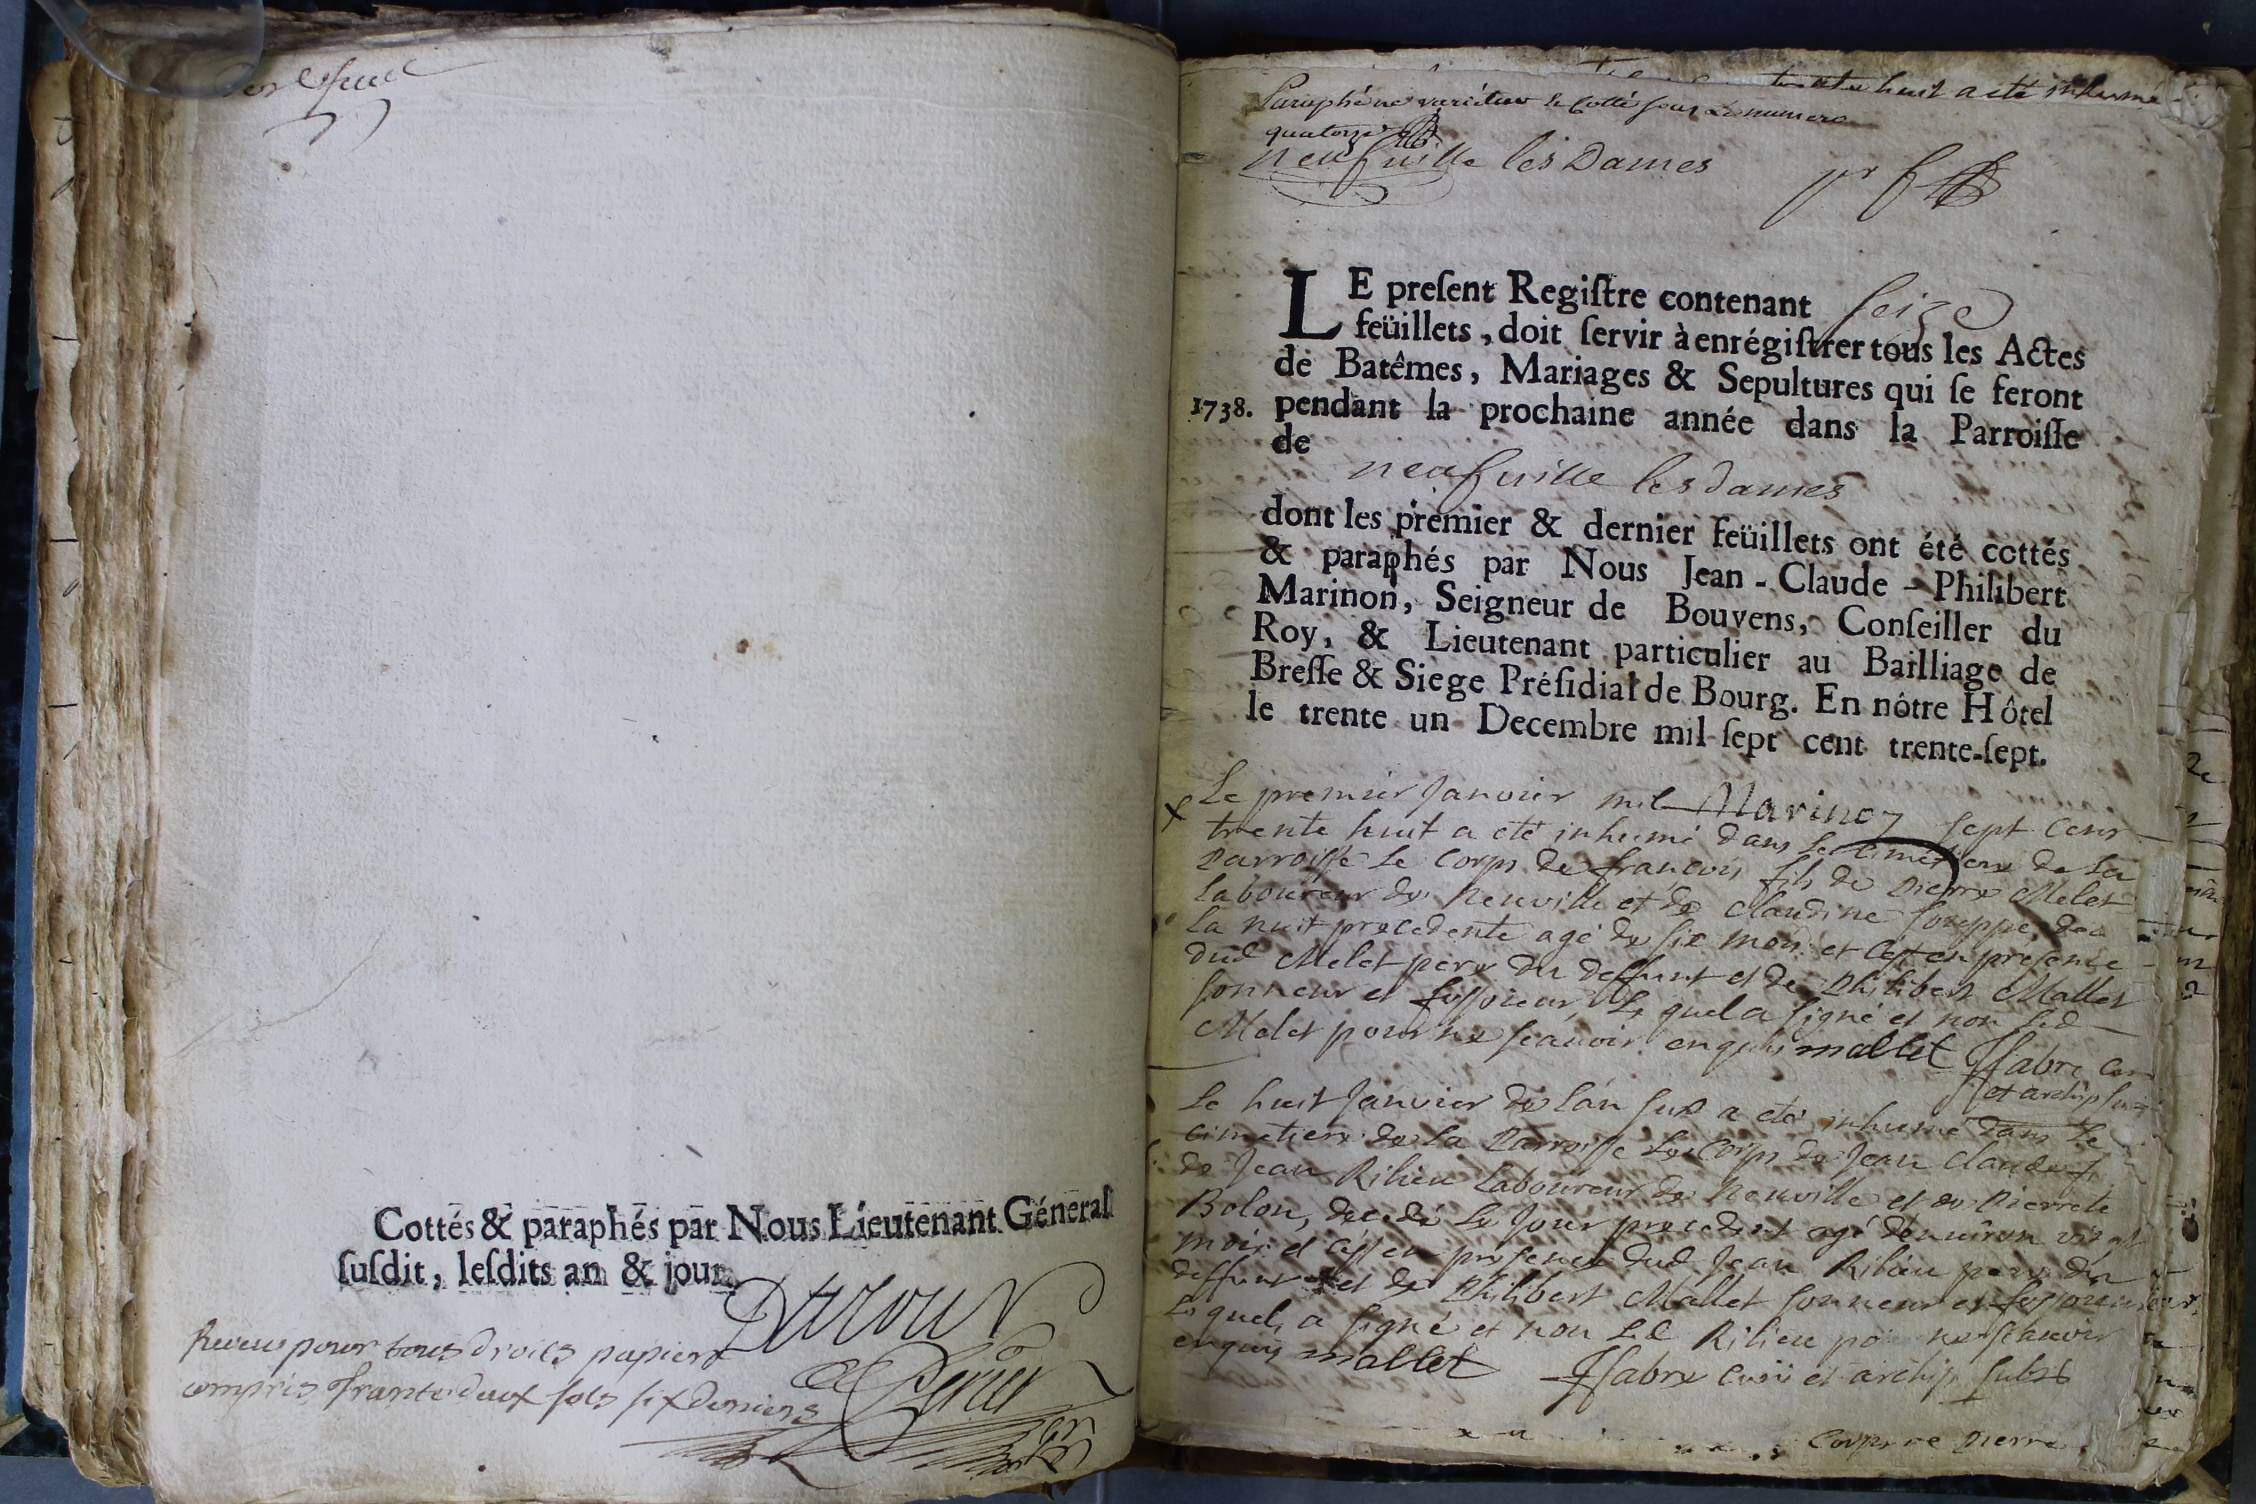 Cottés & paraphés par Nous Lieutenant Géneral
ſuſdit, leſdits an & jour.
Receu pour tous droits papier
compris trante deux sols six deniers
Paraphé ne varietur & Cotté sous le numero
quatorze
huit a eté inhumé
neufville les Dames
LE preſent Regiſtre contenant seize
feüillets, doit ſervir à enrégiſtrer tous les Actes
de Batêmes, Mariages & Sepultures qui ſe feront
1738. pendant la prochaine année dans la Parroiſſe
de
neufville les dames
dont les premier & dernier feüillets ont été cottés
& paraphés par Nous Jean-Claude-Philibert
Marinon, Seigneur de Bouvens, Conſeiller du
Roy, & Lieutenant particulier au Bailliage de
Breſſe & Siege Préſidial de Bourg. En nôtre Hôtel
le trente un Decembre mil ſept cent trente-ſept.
Marinon
Le premier Janvier mil sept cens
trente huit a eté inhumé dans le cimetiere de la
Parroisse le Corps de francois fils de Pierre Melet
laboureur de Neuville et de Claudine
la nuit precedente agé de six mois et c'est en presence
dud Melet pere du deffunt et de Philibert Mallet
sonneur et fossoieur, le quel a signé et non led
Melet pour ne scavoir enquis mallet Ffabre
et archip
Le huit Janvier de l'an sus a eté inhumé dans le
cimetiere de la Parroisse le Corps de Jean Claude
de Jean Rilieu laboureur de Neuville et de Pierrete
Bolon, decedé le jour precedent agé d'environ vingt
mois et c'est en presence dud Jean Rilieu pere du
deffunt et de Philibert Mallet sonneur et fossoieur
le quel a signé et non led Rilieu pour ne scavoir
enquis mallet Ffabre curé et archip
Corps de Pierre